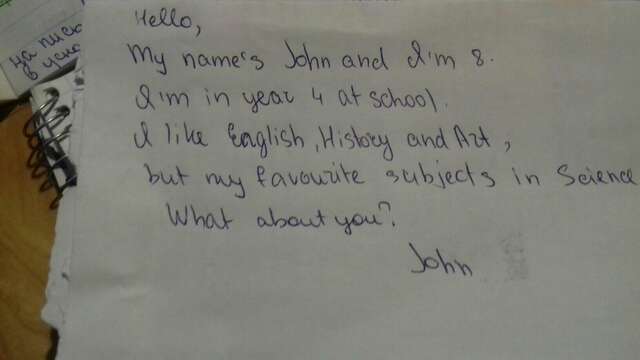 на
в
Hello,
My name's John and I'm 8.
I'm in year 4 at school.
I like English, History and Art,
but my favourite subjects in Science
What about you?
John